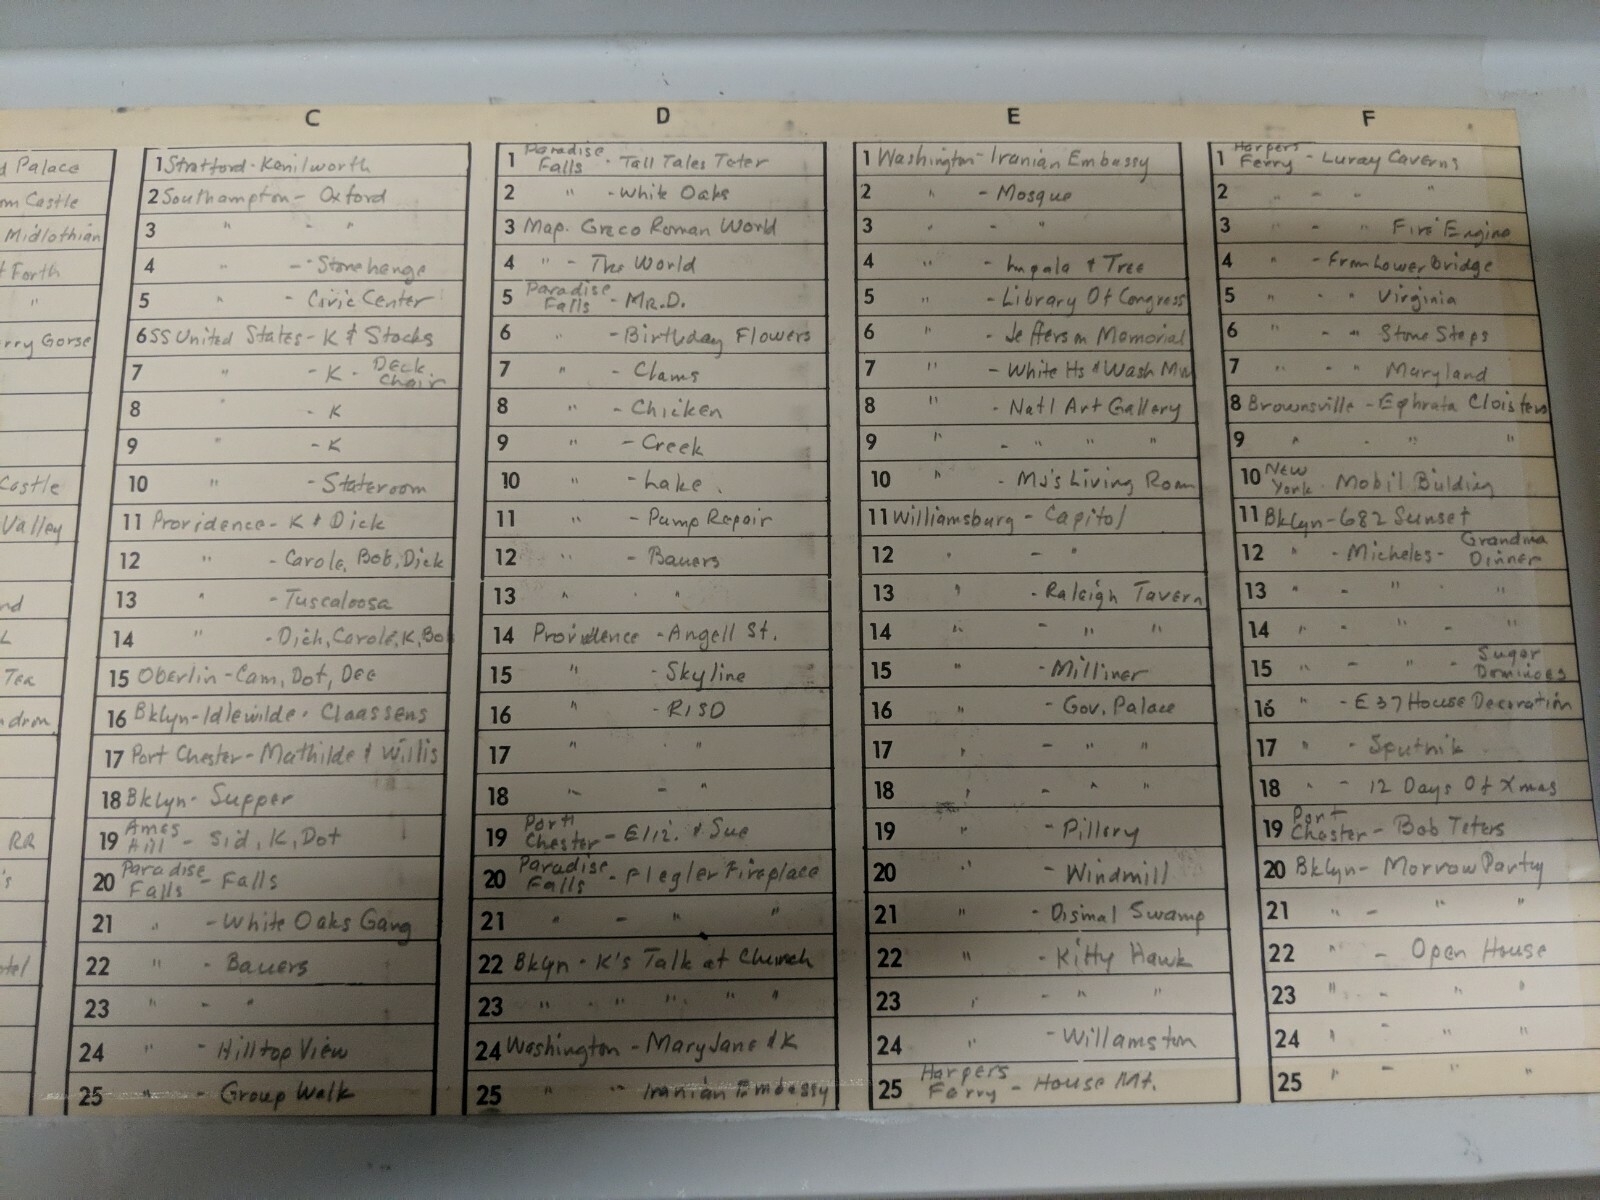 C
D
E
F
Palace
Castle
Midlothian
Forth
"
Gorse
Castle
Valley
Tea
RR
1 Stratford - Kenilworth
2 Southampton - Oxford
3 " - "
4 " - Stonehenge
5 " - Civic Center
6 SS United States - K & Stocks
7 " - K - Deck Chair
8 " - K
9 " - K
10 " - Stateroom
11 Providence - K & Dick
12 " - Carole, Bob, Dick
13 " - Tuscaloosa
14 " - Dick, Carole, K, Bo
15 Oberlin - Cam, Dot, Dee
16 Bklyn - Idlewilde - Claassens
17 Port Chester - Mathilde & Willis
18 Bklyn - Supper
19 Ames Hill - Sid, K, Dot
20 Paradise Falls - Falls
21 " - White Oaks Gang
22 " - Bauers
23 " - "
24 " - Hilltop View
25 " - Group Walk
1 Paradise Falls - Tall Tales Teter
2 " - White Oaks
3 Map. Greco Roman World
4 " - The World
5 Paradise Falls - Mr. D.
6 " - Birthday Flowers
7 " - Clams
8 " - Chicken
9 " - Creek
10 " - Lake
11 " - Pump Repair
12 " - Bauers
13 " - "
14 Providence - Angell St.
15 " - Skyline
16 " - RISD
17 " - "
18 " - "
19 Port Chester - Eliz. & Sue
20 Paradise Falls - Flegler Fireplace
21 " - " "
22 Bklyn - K's Talk at Church
23 " - " " " "
24 Washington - Mary Jane & K
25 " - Iranian Embassy
1 Washington - Iranian Embassy
2 " - Mosque
3 " - "
4 " - Impala & Tree
5 " - Library Of Congress
6 " - Jefferson Memorial
7 " - White Hs & Wash Mn
8 " - Natl Art Gallery
9 " - " " "
10 " - MJ's Living Room
11 Williamsburg - Capitol
12 " - "
13 " - Raleigh Tavern
14 " - " "
15 " - Milliner
16 " - Gov. Palace
17 " - " "
18 " - " "
19 " - Pillory
20 " - Windmill
21 " - Dismal Swamp
22 " - Kitty Hawk
23 " - " "
24 " - Willamston
25 Harpers Ferry - House Mt.
1 Harpers Ferry - Luray Caverns
2 " - "
3 " - " Fire Engine
4 " - From Lower Bridge
5 " - " Virginia
6 " - " Stone Steps
7 " - " Maryland
8 Brownsville - Ephrata Cloisters
9 " - " "
10 New York - Mobil Building
11 Bklyn - 682 Sunset
12 " - Micheles - Grandma Dinner
13 " - " "
14 " - " - "
15 " - " - Sugar Dominoes
16 " - E 37 House Decoration
17 " - Sputnik
18 " - 12 Days Of Xmas
19 Port Chester - Bob Teters
20 Bklyn - Morrow Party
21 " - " "
22 " - Open House
23 " - " "
24 " - " "
25 " - " "